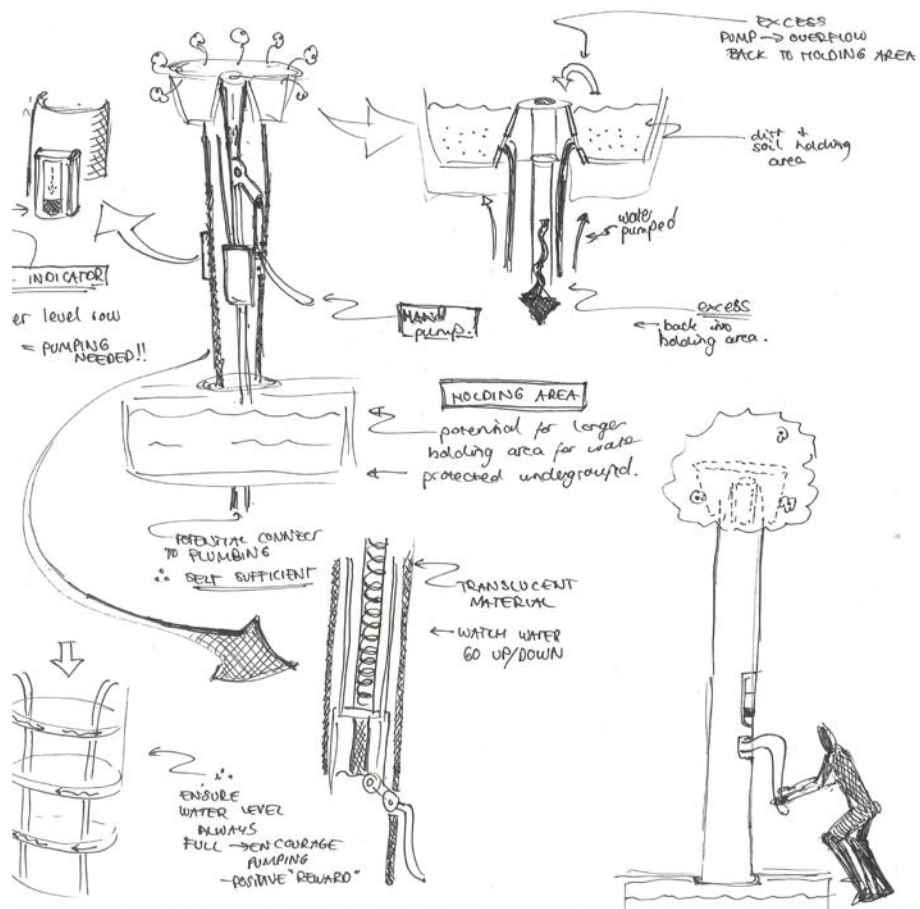 EXCESS
PUMP → OVERFLOW
BACK TO HOLDING AREA
dirt &
soil holding
area
water
pumped
INDICATOR
er level low
← PUMPING
NEEDED!!
HAND
pump!
excess
← back into
holding area.
HOLDING AREA
potential for larger
holding area for water
← protected underground.
POTENTIAL CONNECT
TO PLUMBING
∴ SELF SUFFICIENT
TRANSLUCENT
MATERIAL
← WATCH WATER
GO UP/DOWN
∴
ENSURE
WATER LEVEL
ALWAYS
FULL → ENCOURAGE
PUMPING
- POSITIVE "REWARD"